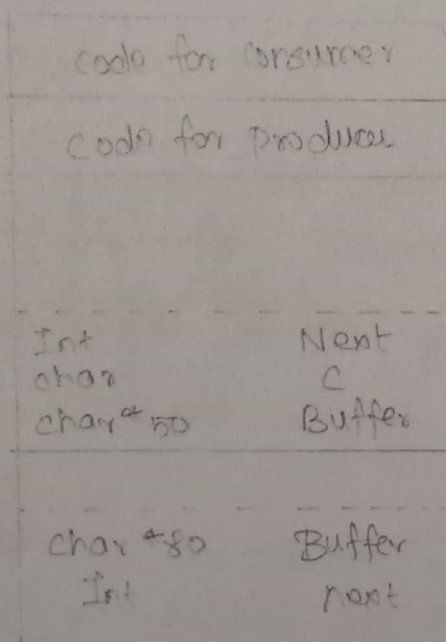 code for consumer
code for producer
Int Next
char C
char * 50 Buffer
char * 80 Buffer
Int next